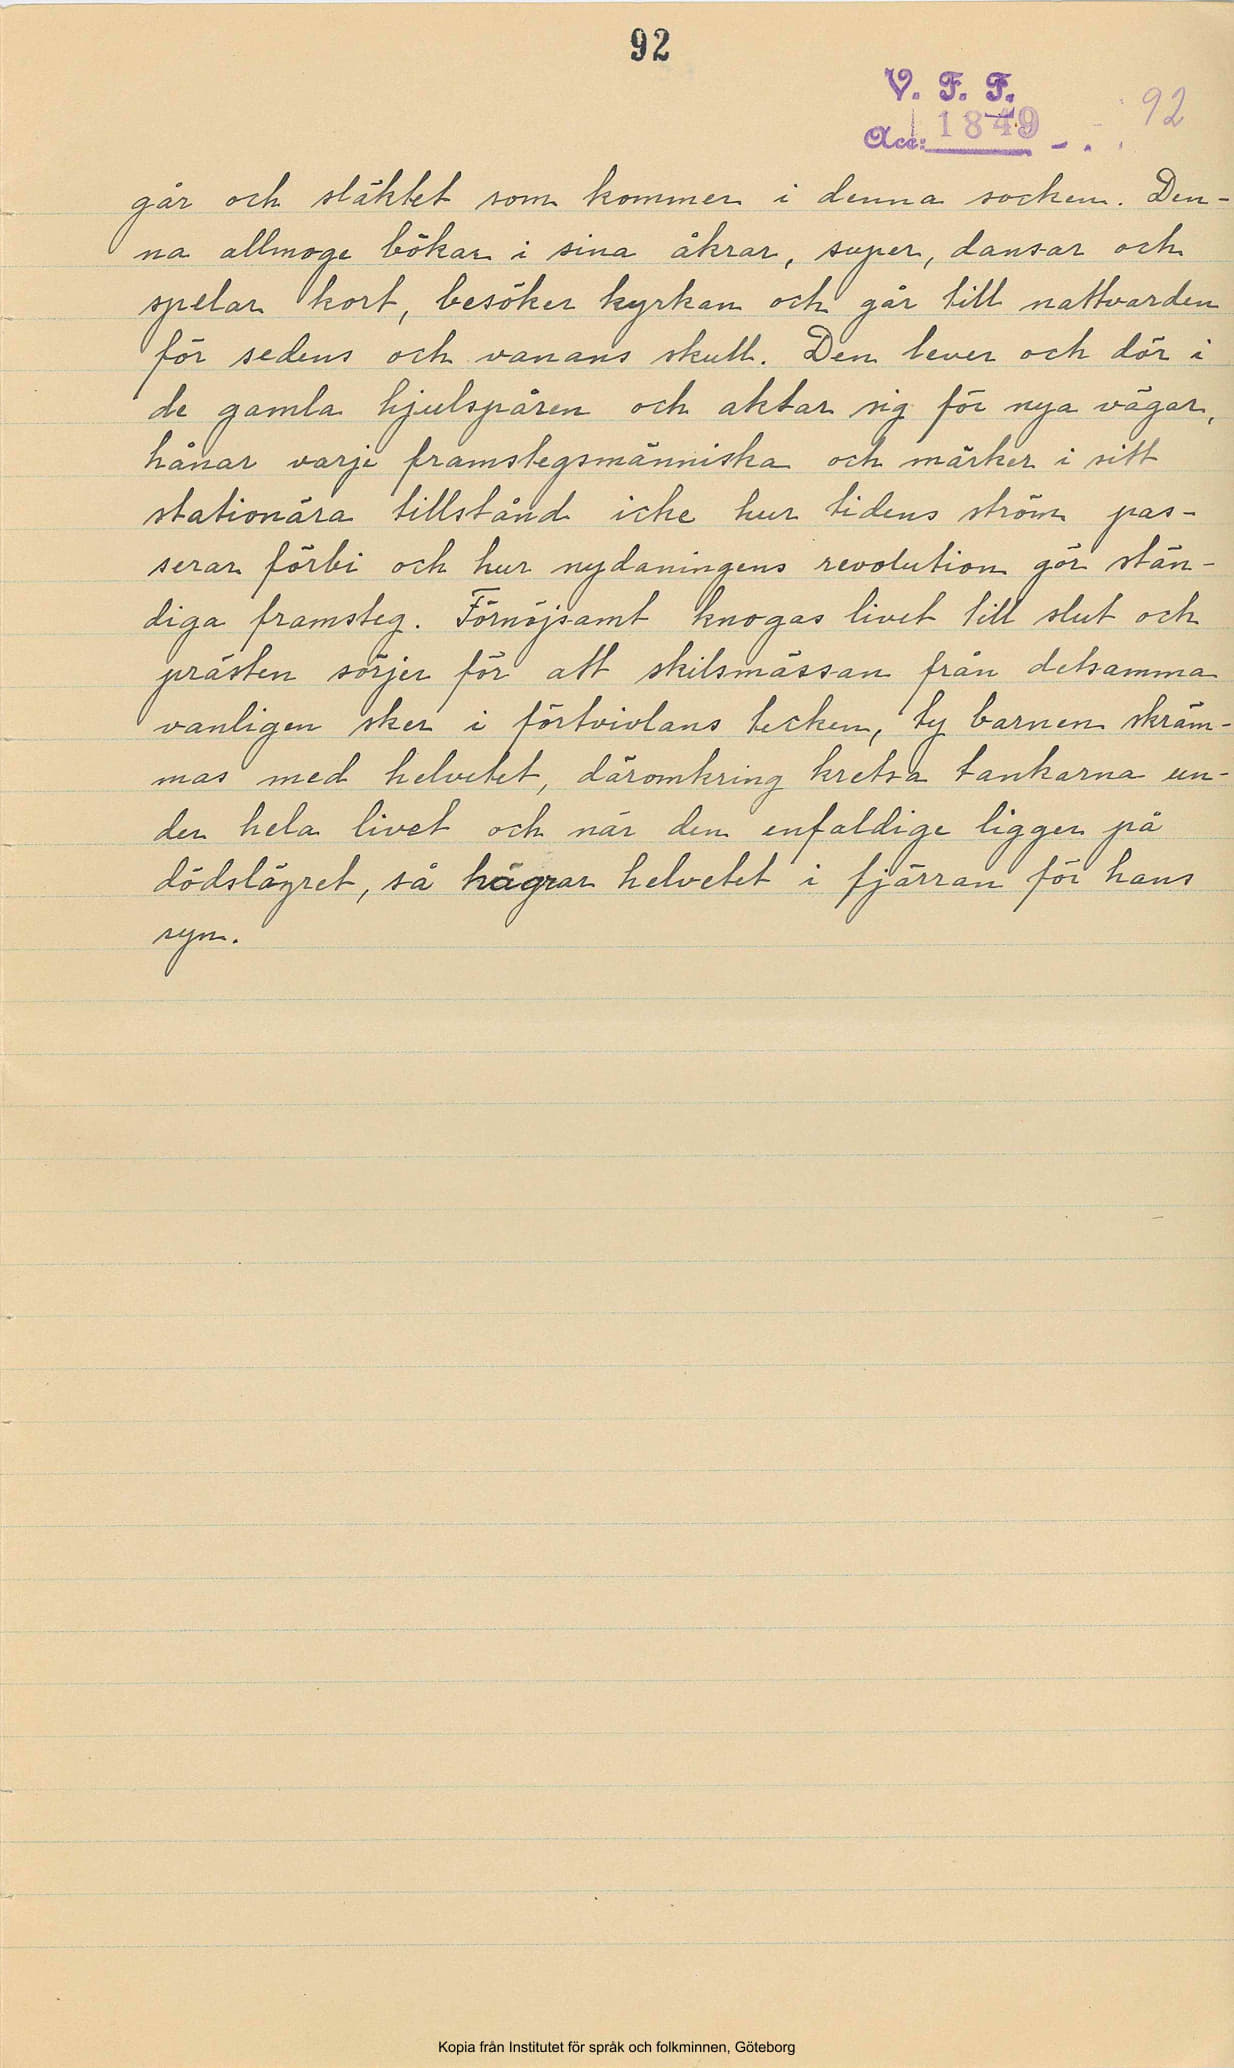 92
V. F. F.
Acc: 1849
92
går och släktet som kommer i denna socken. Den-
na allmoge bökar i sina åkrar, super, dansar och
spelar kort, besöker kyrkan och går till nattvarden
för sedens och vanans skull. Den lever och dör i
de gamla hjulspåren och aktar sig för nya vägar,
hånar varje framstegsmänniska och märker i sitt
stationära tillstånd icke hur tidens ström pas-
serar förbi och hur nydaningens revolution gör stän-
diga framsteg. Förnöjsamt knogas livet till slut och
prästen sörjer för att skilsmässan från detsamma
vanligen sker i förtvivlans tecken, ty barnen skräm-
mas med helvetet, däromkring kretsa tankarna un-
der hela livet och när den enfaldige ligger på
dödslägret, så hägrar helvetet i fjärran för hans
syn.
Kopia från Institutet för språk och folkminnen, Göteborg